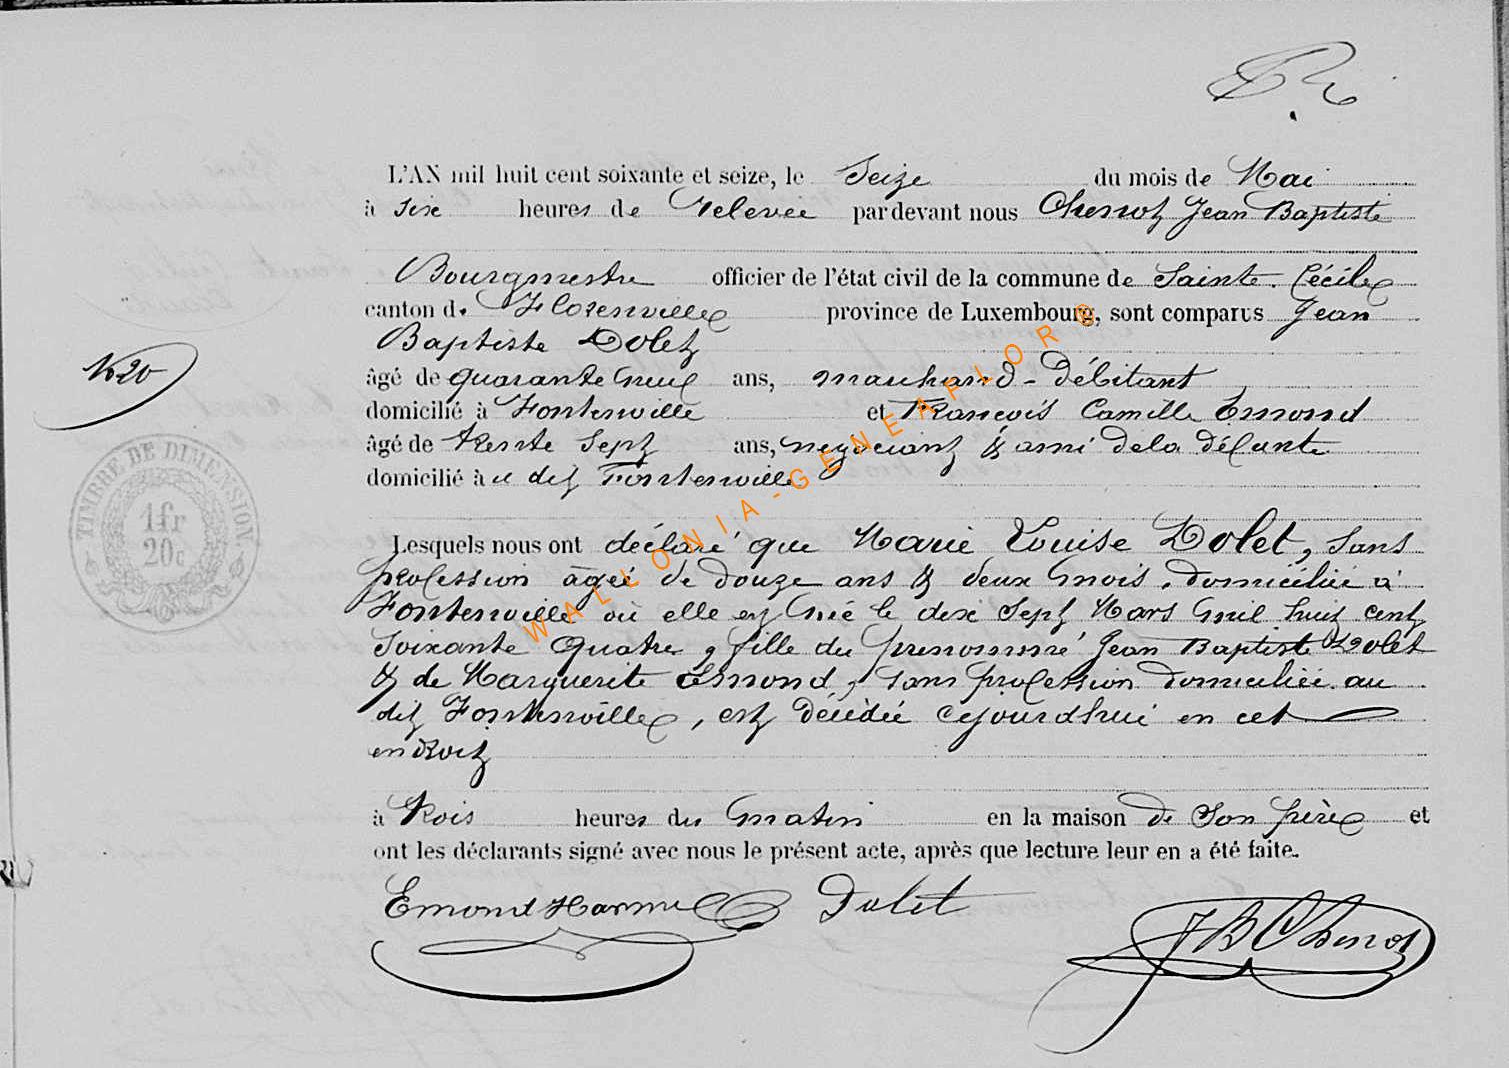 L'AN mil huit cent soixante et seize, le Seize du mois de Mai
à six heures de relevée par devant nous Chenot Jean Baptiste
Bourgmestre officier de l'état civil de la commune de Sainte-Cécile
canton de Florenville province de Luxembourg, sont comparus Jean
Baptiste Dolet
âgé de quarante neuf ans, marchand-débitant
domicilié à Fontenoille et François Camille Emond
âgé de trente sept ans, négociant & ami de la défunte
domicilié à u dit Fontenoille
Lesquels nous ont déclaré que Marie Louise Dolet, sans
profession âgée de douze ans & deux mois, domiciliée à
Fontenoille où elle est née le dix sept Mars mil huit cent
soixante quatre, fille du prénommé Jean Baptiste Dolet
& de Marguerite Emond, sans profession domiciliée au
dit Fontenoille, est décédée cejourd'hui en cet
endroit
à trois heures du matin en la maison de son père et
ont les déclarants signé avec nous le présent acte, après que lecture leur en a été faite.
Emond Dolet JB Chenot
N 20
TIMBRE DE DIMENSION
1 fr
20c
WALLONIA-GENEAFLORE